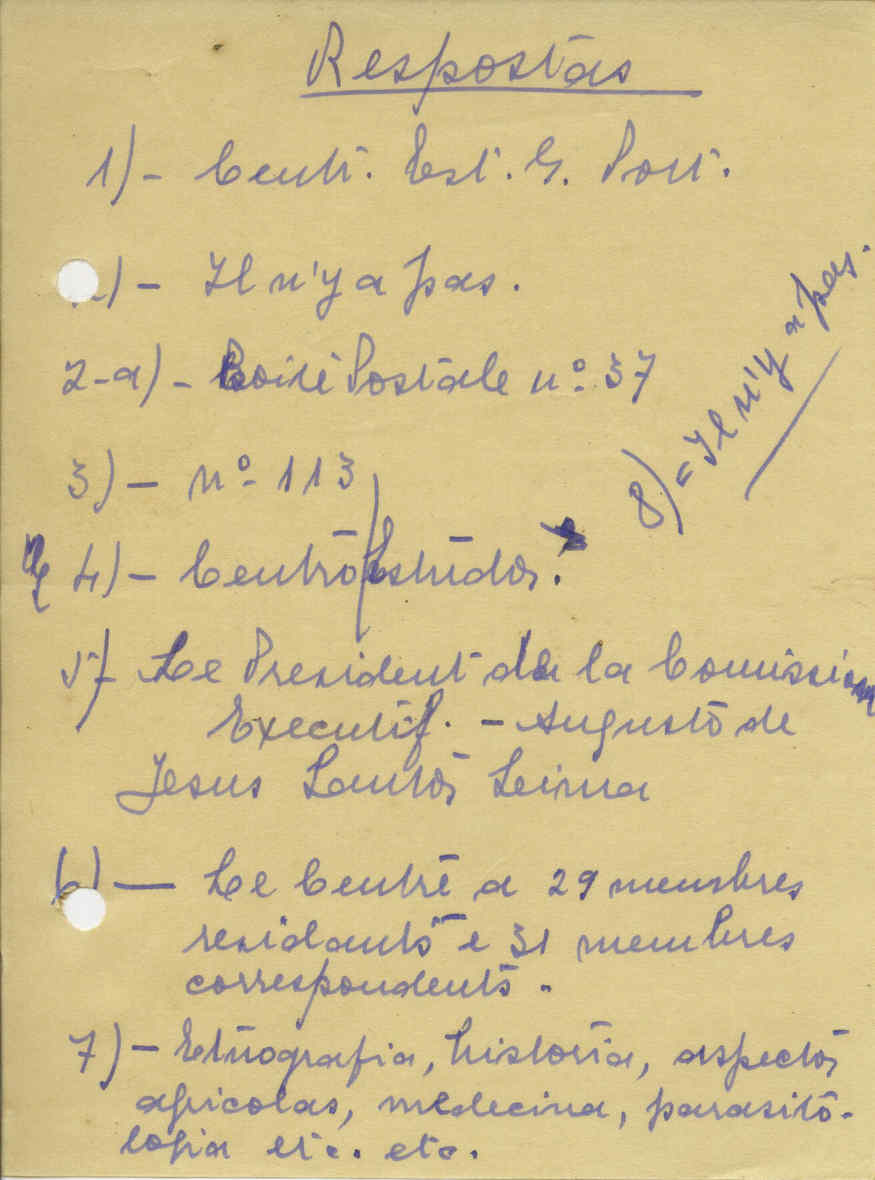 Respostas
1) - Centr. Est. G. Port.
) - Il n'y a pas.
2-a) - Boite Postale nº 37
3) - nº 113
4) - Centro Estudos.
5) - Le President de la Comission
Executif. - Augusto de
Jesus Santos Leima
6) — Le Centre a 29 membres
residants e 31 membres
correspondents.
7) - Etnografia, historia, aspectos
agricolas, medecina, parasito-
logia etc. etc.
8) = Il n'y a pas.